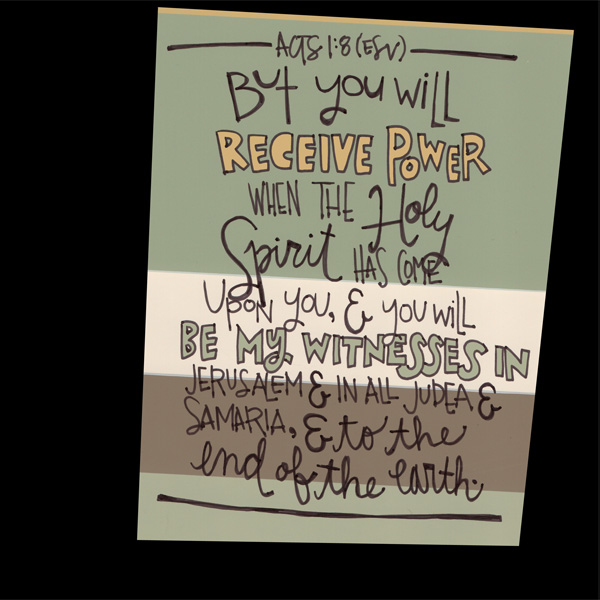 ACTS 1:8 (ESV)
But you will
RECEIVE POWER
WHEN THE Holy
Spirit HAS COME
UPON YOU, & YOU WILL
BE MY WITNESSES IN
JERUSALEM & IN ALL JUDEA &
SAMARIA, & to the
end of the earth.